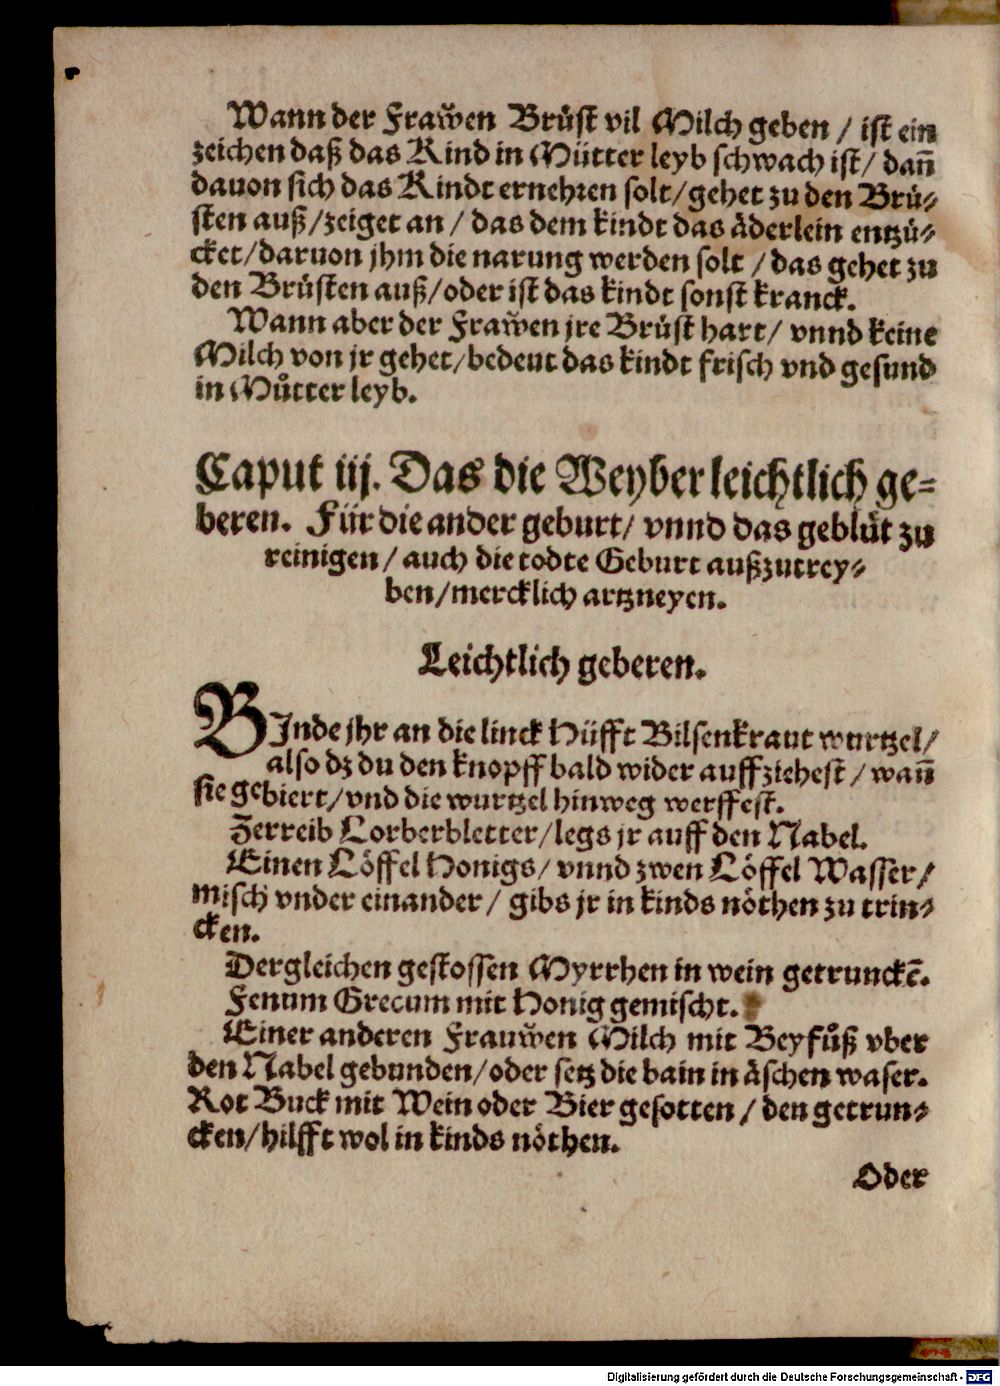 Wann der Fraw̃en Brüst vil Milch geben / ist ein
zeichen daß das Kind in Mütter leyb schwach ist / dañ
dauon sich das Kindt ernehren solt / gehet zu den Brü-
sten auß / zeiget an / das dem kindt das äderlein entzü-
cket / daruon jhm die narung werden solt / das gehet zu
den Brüsten auß / oder ist das kindt sonst kranck.
Wann aber der Fraw̃en jre Brüst hart / vnnd keine
Milch von jr gehet / bedeut das kindt frisch vnd gesund
in Můtter leyb.
Caput iij. Das die Weyber leichtlich ge-
beren. Für die ander geburt / vnnd das geblüt zu
reinigen / auch die todte Geburt außzutrey-
ben / mercklich artzneyen.
Leichtlich geberen.
BInde jhr an die linck Hüfft Bilsenkraut wurtzel /
also dz du den knopff bald wider auffziehest / wañ
sie gebiert / vnd die wurtzel hinweg werffest.
Zerreib Lorberbletter / legs jr auff den Nabel.
Einen Löffel Honigs / vnnd zwen Löffel Wasser /
misch vnder einander / gibs jr in kinds nöthen zu trin-
cken.
Dergleichen gestossen Myrrhen in wein getrunckē.
Fenum Grecum mit Honig gemischt.
Einer anderen Frauw̃en Milch mit Beyfůß vber
den Nabel gebunden / oder setz die bain in äschen waser.
Rot Buck mit Wein oder Bier gesotten / den getrun-
cken / hilfft wol in kinds nöthen.
Oder
Digitalisierung gefördert durch die Deutsche Forschungsgemeinschaft - DFG